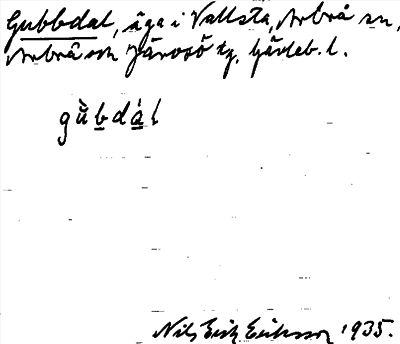 Gubbdal, äga i Vallsta, Arbrå sn,
Arbrå och Järvsö tg, Gävleb. l.
gu̇̀b̲dá̲l
Nils Erik Eriksson 1935.